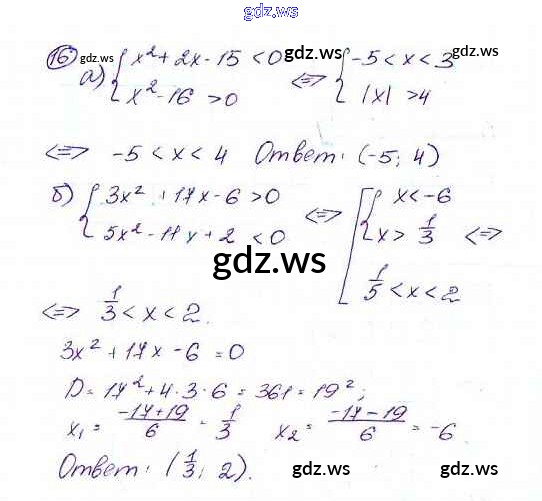 gdz.ws
16 gdz.ws
а) { x² + 2x - 15 < 0 <=> { -5 < x < 3 gdz.ws
x² - 16 > 0 |x| > 4
<=> -5 < x < 4 Ответ: (-5; 4)
б) { 3x² + 17x - 6 > 0 <=> [ { x < -6
5x² - 11x + 2 < 0 x > 1/3 <=>
gdz.ws 1/5 < x < 2
<=> 1/3 < x < 2.
3x² + 17x - 6 = 0
D = 17² + 4·3·6 = 361 = 19²;
x₁ = (-17+19)/6 = 1/3 x₂ = (-17-19)/6 = -6
Ответ: (1/3; 2). gdz.ws gdz.ws